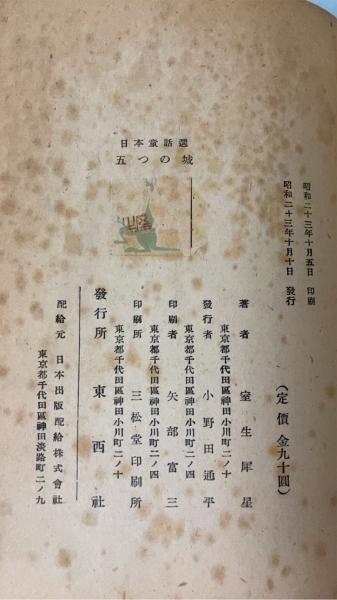 日本童話選
五つの城
昭和二十三年十月五日 印刷
昭和二十三年十月十日 發行
(定價 金九十圓)
著者 室生犀星
東京都千代田區神田小川町二ノ十
發行者 小野田通平
東京都千代田區神田小川町二ノ四
印刷者 矢部富三
東京都千代田區神田小川町二ノ四
印刷所 三松堂印刷所
東京都千代田區神田小川町二ノ十
發行所 東西社
配給元 日本出版配給株式會社
東京都千代田區神田淡路町二ノ九